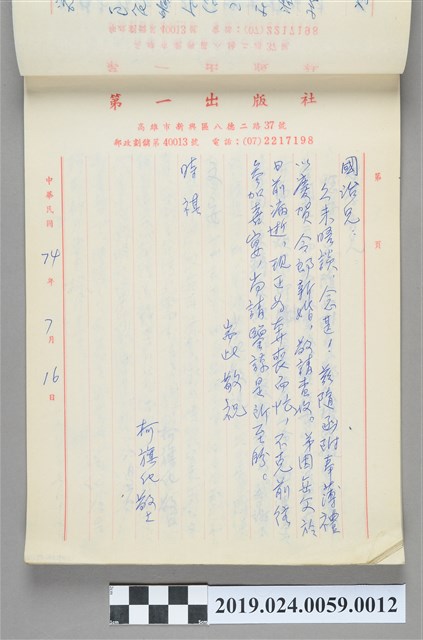 第一出版社
高雄市新興區八德二路37號
郵政劃鏇第40013號 電話:(07)2217198
第 頁
國治兄：
久未晤談，念甚！茲隨函附奉薄禮
以慶賀令郎新婚，敬請查收。弟因岳父於
日前病逝，現正為奔喪而忙，不克前往
參加喜宴，尚請鑒諒是所至盼。
耑此敬祝
時祺
柯旗化敬上
中華民國 74 年 7 月 16 日
2019.024.0059.0012